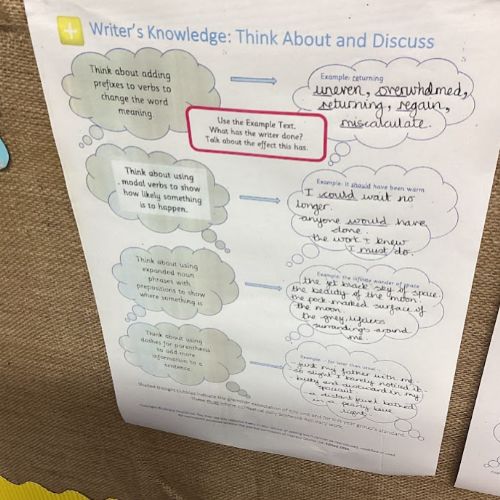 Writer's Knowledge: Think About and Discuss
Think about adding
prefixes to verbs to
change the word
meaning.
Example: returning
uneven, overwhelmed,
returning, regain,
miscalculate.
Use the Example Text.
What has the writer done?
Talk about the effect this has.
Think about using
modal verbs to show
how likely something
is to happen.
Example: it should have been warm
I could wait no
longer.
anyone would have
done.
the work I knew
I must do.
Think about using
expanded noun
phrases with
prepositions to show
where something is
Example: the infinite wonder of space
the jet black sky of space
the beauty of the moon
the pock marked surface of
the moon
the grey, lifeless
surroundings around
me.
Think about using
dashes for parenthesis
to add more
information to a
sentence.
Example: - far later than usual -
- just my father with me -
- so slight I barely noticed it -
- bulky and awkward in my
spacesuit
- a distant planet bathed
in a pearly blue
light